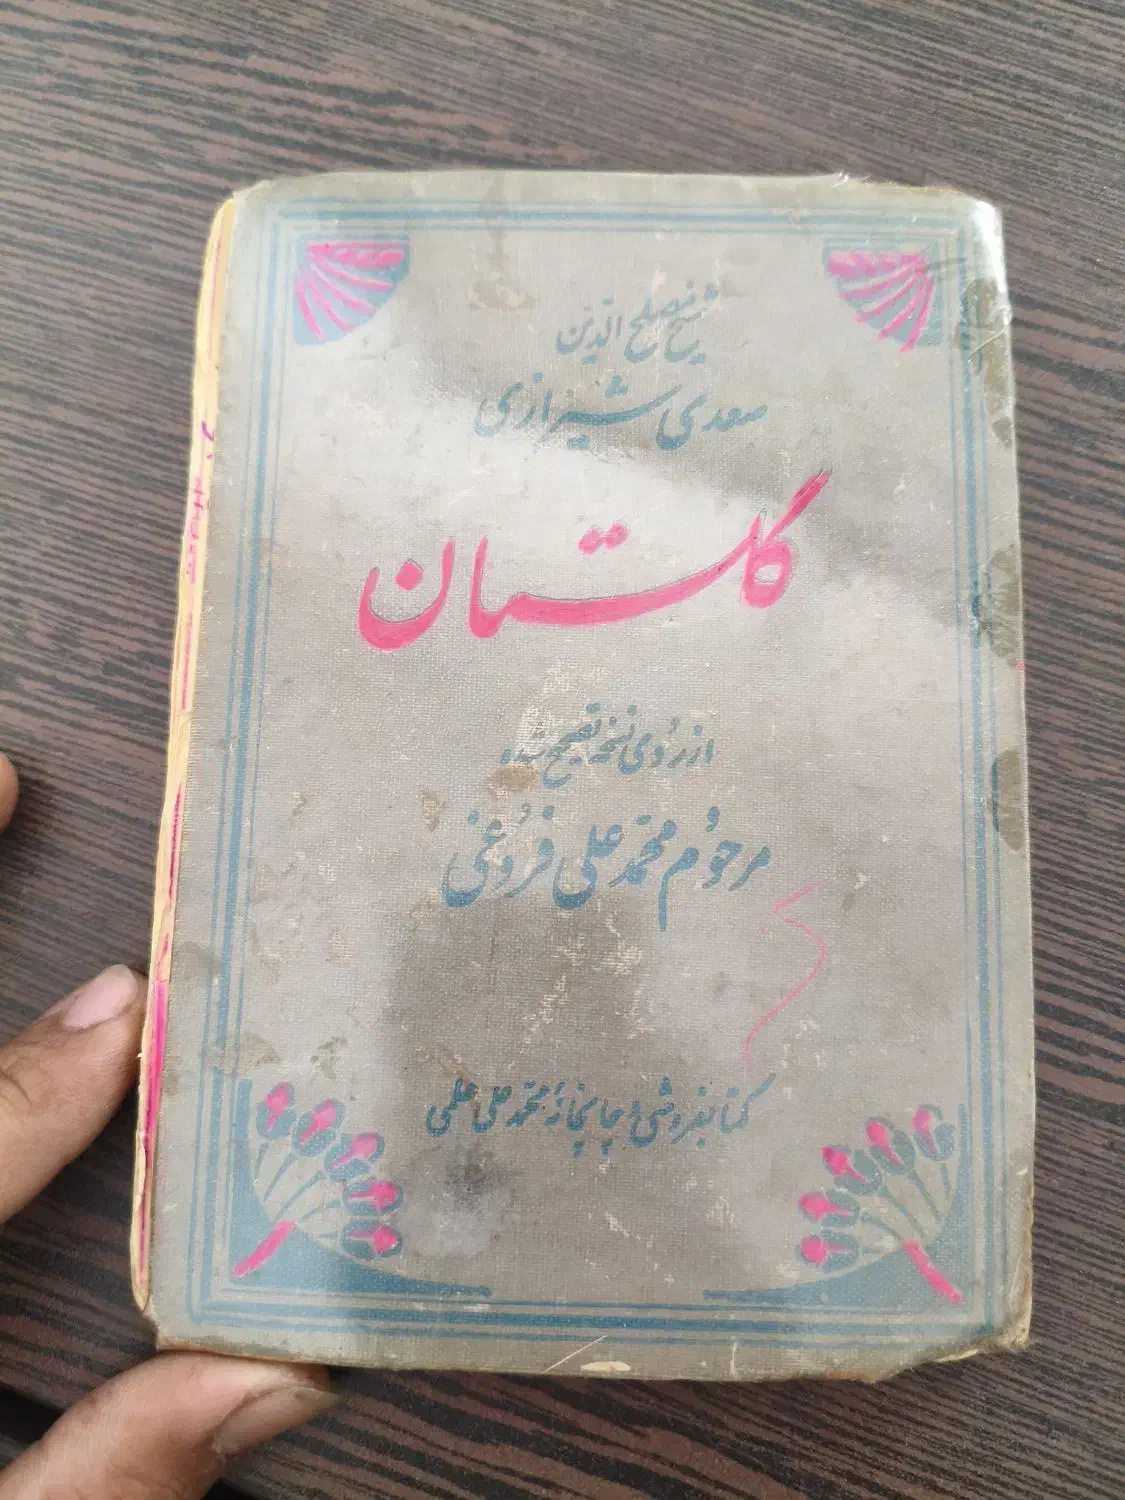 شیخ مصلح الدین
سعدی شیرازی
گلستان
از روی نسخه تصحیح شده
مرحوم محمد علی فروغی
کتابفروشی و چاپخانهٔ محمد علی علمی